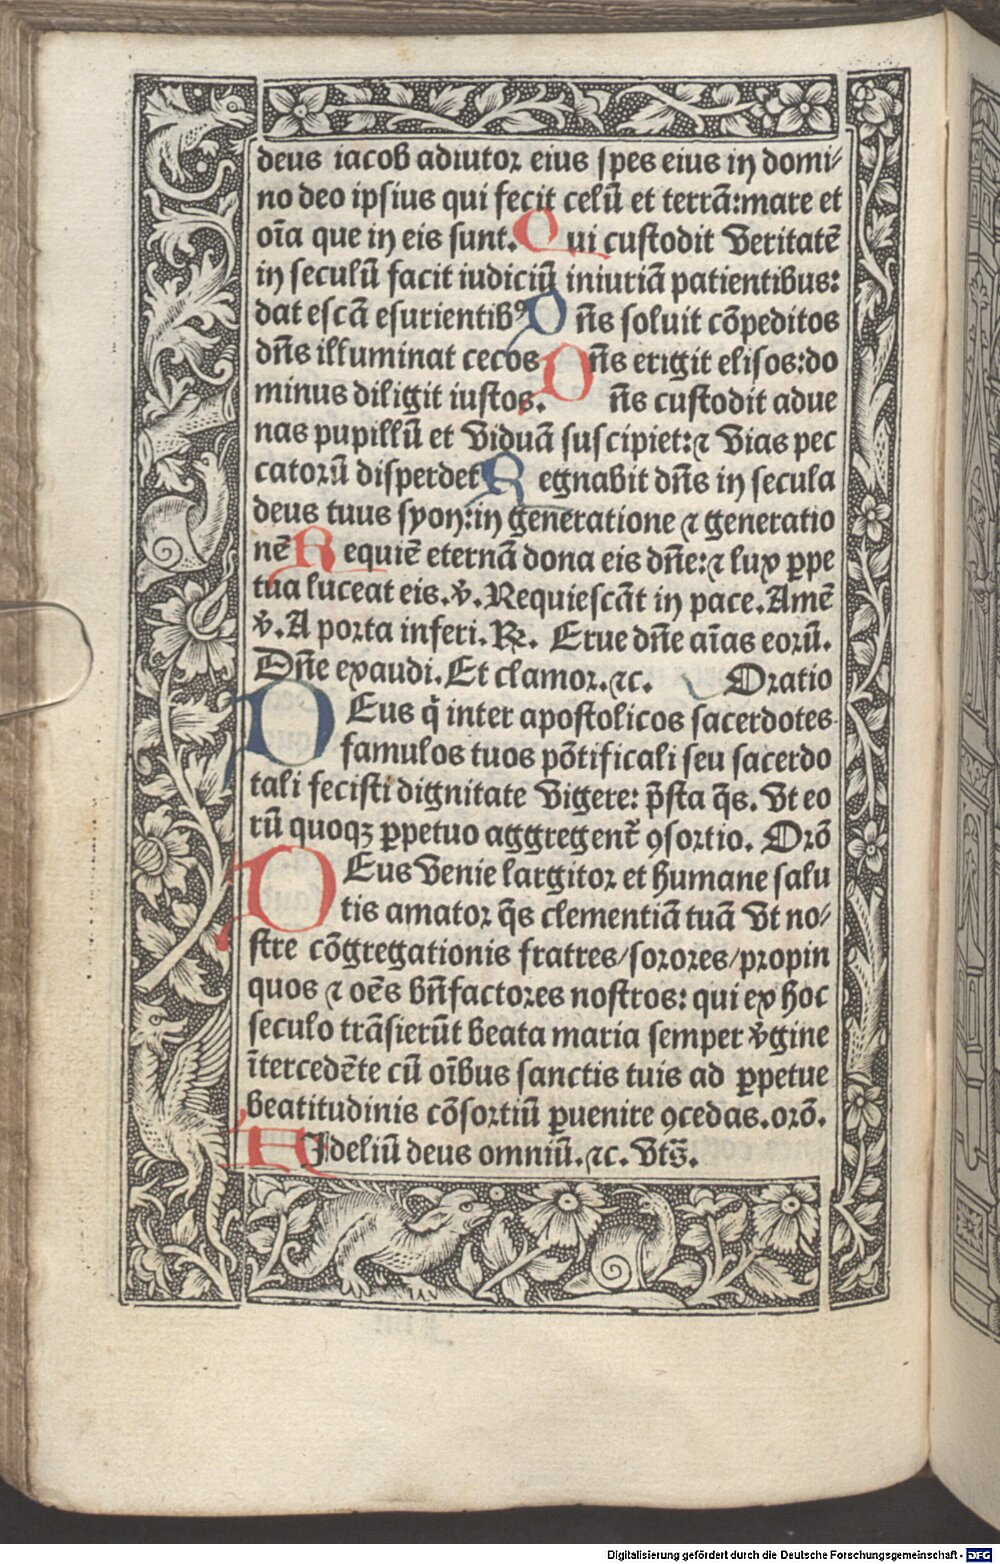 deus iacob adiutor eius spes eius in domi⸗
no deo ipsius qui fecit celū et terrā:mare et
oīa que in eis sunt. Qui custodit veritatē
in seculū facit iudiciū iniuriā patientibus:
dat escā esurientibꝰ Dn̄s soluit cōpeditos
dn̄s illuminat cecos Dn̄s erigit elisos:do
minus diligit iustos. Dn̄s custodit adue
nas pupillū et viduā suscipiet:⁊ vias pec
catorū disperdet Regnabit dn̄s in secula
deus tuus syon:in generatione ⁊ generatio
nē Requiē eternā dona eis dn̄e:⁊ lux ꝑpe
tua luceat eis.v̄.Requiescāt in pace.Amē
v̄.A porta inferi.R̷. Erue dn̄e aīas eorū.
Dn̄e exaudi.Et clamor.⁊c. Oratio
DEus q̇ inter apostolicos sacerdotes
famulos tuos pōtificali seu sacerdo
tali fecisti dignitate vigere: p̄sta q̄s. vt eo
rū quoqꝫ ꝑpetuo aggregent᷑ ꝯsortio. Orō
DEus venie largitor et humane salu
tis amator q̄s clementiā tuā vt no⸗
stre cōgregationis fratres/sorores/propin
quos ⁊ oēs bn̄factores nostros: qui ex hoc
seculo trāsierūt beata maria semper v̄gine
ītercedēte cū oībus sanctis tuis ad ꝑpetue
beatitudinis cōsortiū ꝑuenire ꝯcedas.orō.
FIdeliū deus omniū.⁊c. vts̄.
Digitalisierung gefördert durch die Deutsche Forschungsgemeinschaft - DFG